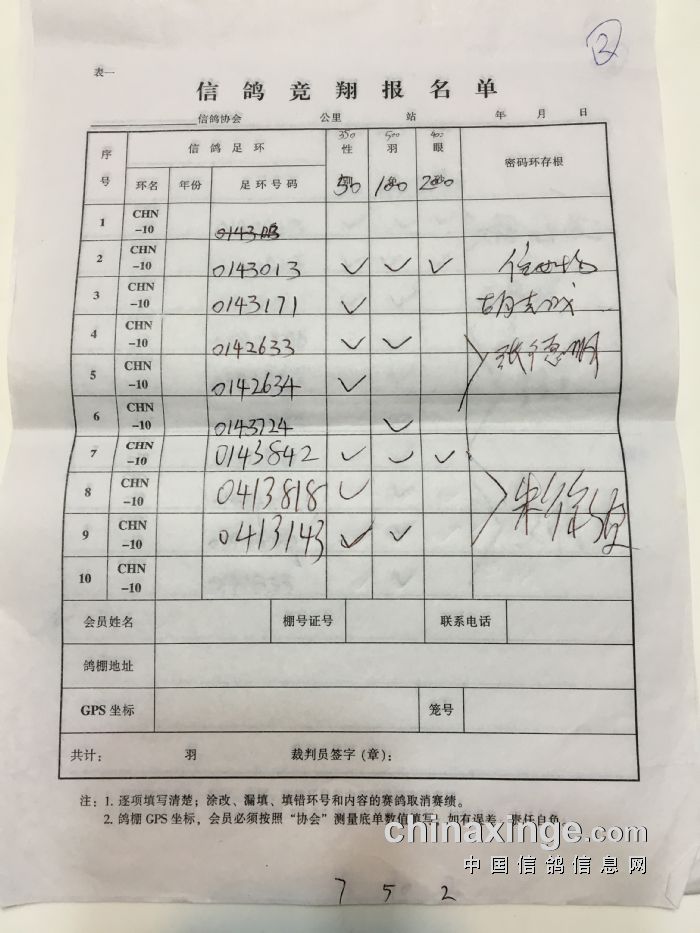 ②
表一
信鸽竞翔报名单
信鸽协会 公里 站 年 月 日
序号 信鸽足环 350 性 500 羽 400 眼 密码环存根
环名 年份 足环号码 50 100 200
1 CHN-10
2 CHN-10 0143013 ✓ ✓ ✓
3 CHN-10 0143171 ✓
4 CHN-10 0142633 ✓ ✓ 张德明
5 CHN-10 0142634 ✓
6 CHN-10 0143724 ✓
7 CHN-10 0143842 ✓ ✓ ✓
8 CHN-10 0413818 ✓
9 CHN-10 0413143 ✓ ✓
10 CHN-10
会员姓名 棚号证号 联系电话
鸽棚地址
GPS 坐标 笼号
共计： 羽 裁判员签字（章）：
注：1. 逐项填写清楚；涂改、漏填、填错环号和内容的赛鸽取消赛绩。
2. 鸽棚 GPS 坐标，会员必须按照“协会”测量底单数值填写，如有误差，责任自负。
chinaxinge.com
中国信鸽信息网
7 5 2